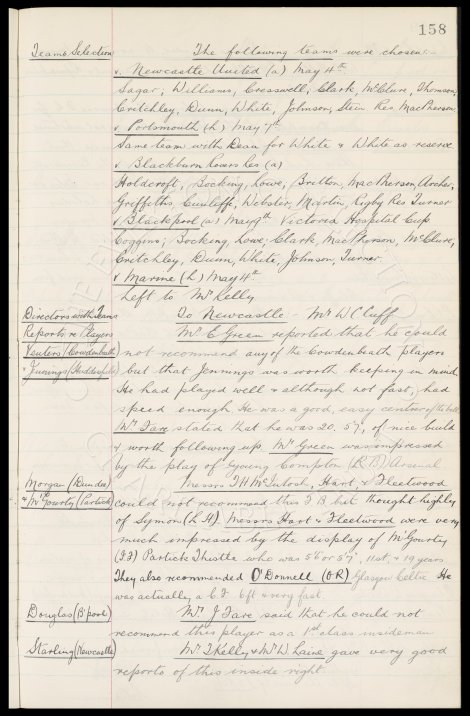 158
Teams Selection The following teams were chosen:-
v. Newcastle United (a) May 4th
Sagar, Williams, Cresswell, Clark, McClure, Thomson,
Critchley, Dunn, White, Johnson, Stein Res MacPherson
v Portsmouth (h) May 7th
Same team with Dean for White & White as reserve
v Blackburn Rovers Res (a)
Holdcroft, Bocking, Lowe, Britton, MacPherson, Archer,
Griffiths, Cunliffe, Webster, Martin, Rigby Res Turner
v Blackpool (a) May 9th Victoria Hospital Cup
Coggins, Bocking, Lowe, Clark, MacPherson, McClure,
Critchley, Dunn, White, Johnson, Turner.
v Marine (h) May 4th
Left to Mr Kelly
Directors with Teams To Newcastle - Mr W C Cuff
Reports re Players Mr E Green reported that he could
(Cowdenbeath) not recommend any of the Cowdenbeath players
& Jennings (Huddersfield) but that Jennings was worth keeping in mind
He had played well & although not fast, had
speed enough. He was a good, easy of the ball
Mr Fare stated that he was 20. 5'9", of nice build
& worth following up. Mr Green was impressed
by the play of young Compton (R B) Arsenal
Morgan (Dundee) Messrs T H McIntosh, Hart, & Fleetwood
& McGourty (Partick) could not recommend this F B but thought highly
of Symon (L H). Messrs Hart & Fleetwood were very
much impressed by the display of McGourty
(I F) Partick Thistle who was 5'6 or 5'7", 11st, & 19 years
They also recommended O'Donnell (O R) Glasgow Celtic He
was actually a C F 6ft & very fast.
Douglas (B'pool) Mr J Fare said that he could not
recommend this player as a 1st class insideman
Starling (Newcastle) Mr T Kelly & Mr W. Laine gave very good
reports of this inside right.